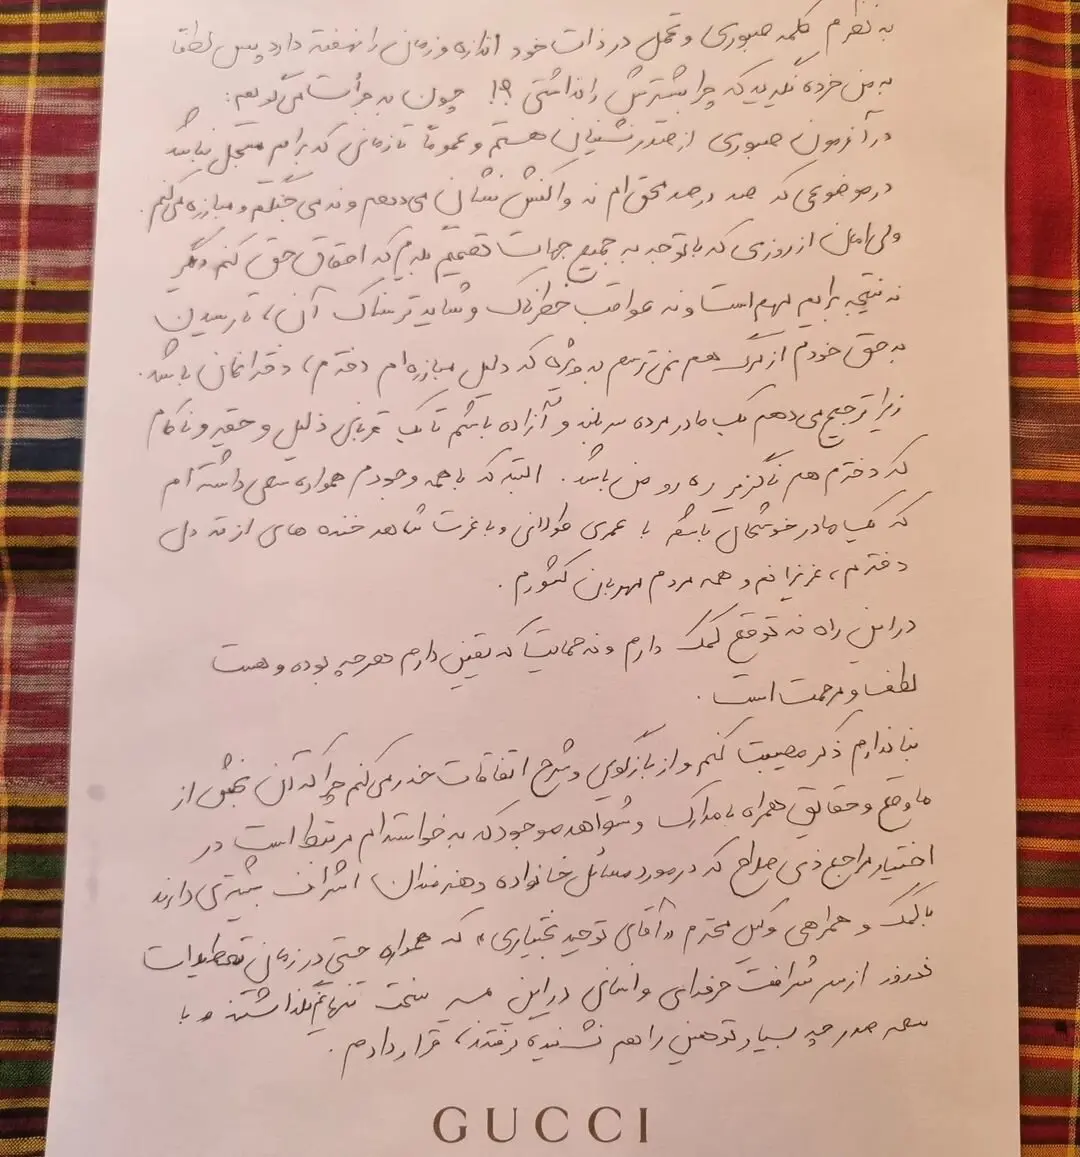 به نظرم کلمه صبوری و تحمل در ذات خود اندازه و زمانی را نهفته دارد پس لطفا
به من خرده نگیرید که چرا بیشترش را نداشتی؟! چون به جرأت می‌گویم:
در آزمون صبوری از صدرنشینان هستم و عموماً تا زمانی که برایم مسجل نباشد
در موضوعی که صد درصد محق ام نه واکنش نشان می‌دهم و نه می‌جنگم و مبارزه می‌کنم.
ولی امان از روزی که با توجه به جمیع جهات تصمیم بگیرم که احقاق حق کنم دیگر
نه نتیجه برایم مهم است و نه عواقب خطرناک و شاید ترسناک آن، تا رسیدن
به حق خودم از مرگ هم نمی‌ترسم به ویژه که دلیل مبارزه‌ام دخترم، دخترانمان باشد.
زیرا ترجیح می‌دهم یک مادر مرده سربلند و آزاده باشم تا یک قربانی ذلیل و حقیر و ناکام
که دخترم هم ناگزیر ره رو من باشد. البته که با همه وجودم همواره سعی داشته ام
که یک مادر خوشحال باشم با عمری طولانی و با عزت شاهد خنده های از ته دل
دخترم، عزیزانم و همه مردم مهربان کشورم.
در این راه نه توقع کمک دارم و نه حمایت که یقین دارم هر چه بوده و هست
لطف و مرحمت است.
بنا ندارم ذکر مصیبت کنم و از بازگویی و شرح اتفاقات حذر می‌کنم چرا که آن بخش از
ماوقع و حقایق همراه با مدارک و شواهد موجود که به خواسته‌ام مرتبط است در
اختیار مراجع ذی صلاح که در مورد مسائل خانواده و هنرمندان اشراف بیشتری دارند
با کمک و همراهی وکیل محترم «آقای توحید بختیاری» که همواره حتی در زمان تعطیلات
نوروز از سر شرافت حرفه‌ای و انسانی در این مسیر سخت تنهایم نگذاشتند و با
سعه صدر چه بسیار توهین را هم نشنیده گرفتند، قرار دادم.
GUCCI